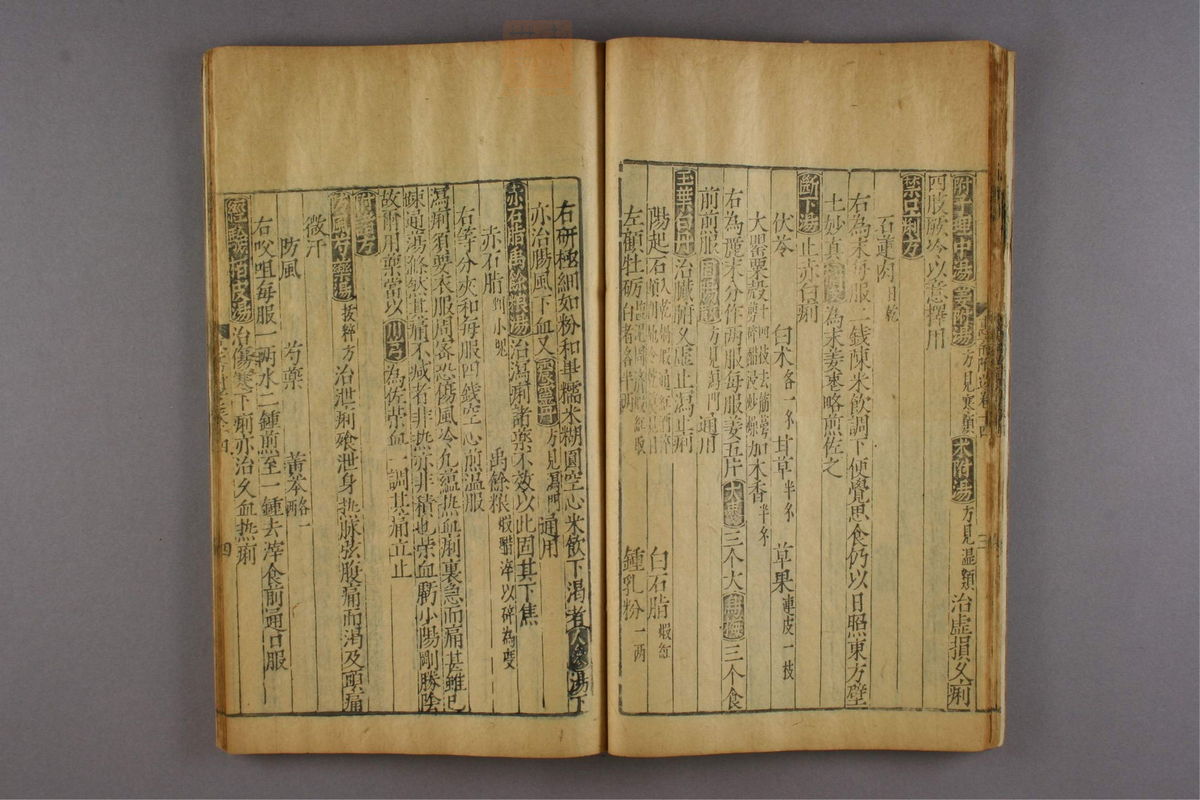 附子理中湯 姜附湯 方見寒類 木附湯 方見溫類 治虛損久痢
四肢厥冷以意撰用
禁口痢方
石蓮肉 日乾
右為末每服二錢陳米飲調下便覺思食仍以日照東方壁
土妙真 為末姜棗略煎佐之
斷下湯 止赤白痢
伏苓 白术 各一分 甘草 半分 草果 連皮一枝
大罌粟殼 十四枝去筋萼 剪碎醋 加木香 半分
右為麄末分作兩服每服姜五片大棗三个大烏梅三个食
前煎服 方見瀉門 通用
玉華白丹 治臟腑久虛止瀉止痢
陽起石 白石脂 煆紅
左顧牡礪 鍾乳粉 一兩
右研極細如粉和畢糯米糊圓空心米飲下渴者人參湯下
亦治腸風下血又震靈丹 方見瀉門 通用
赤石脂禹餘糧湯 治瀉痢諸藥不效以此固其下焦
赤石脂 禹餘粮 煆醋淬以碎為度
右等分夾和每服四錢空心煎溫服
瀉痢須要衣服周密恐傷風冷凢蘊熱血痢裏急而痛甚雖已
踈通瀉滌欤其痛不减者非熱亦非積也榮血虧小陽剛勝陰
故耐用藥當以川芎為佐榮血一調其痛立止
附諸方
防風芍藥湯 拔粹方 治泄痢飱泄身热脉弦腹痛而渴及頭痛
微汗
防風 芍藥 黃芩
右㕮咀每服一兩水二鍾煎至一鍾去滓食前通口服
經驗栢皮湯 治傷寒下痢亦治久血热痢